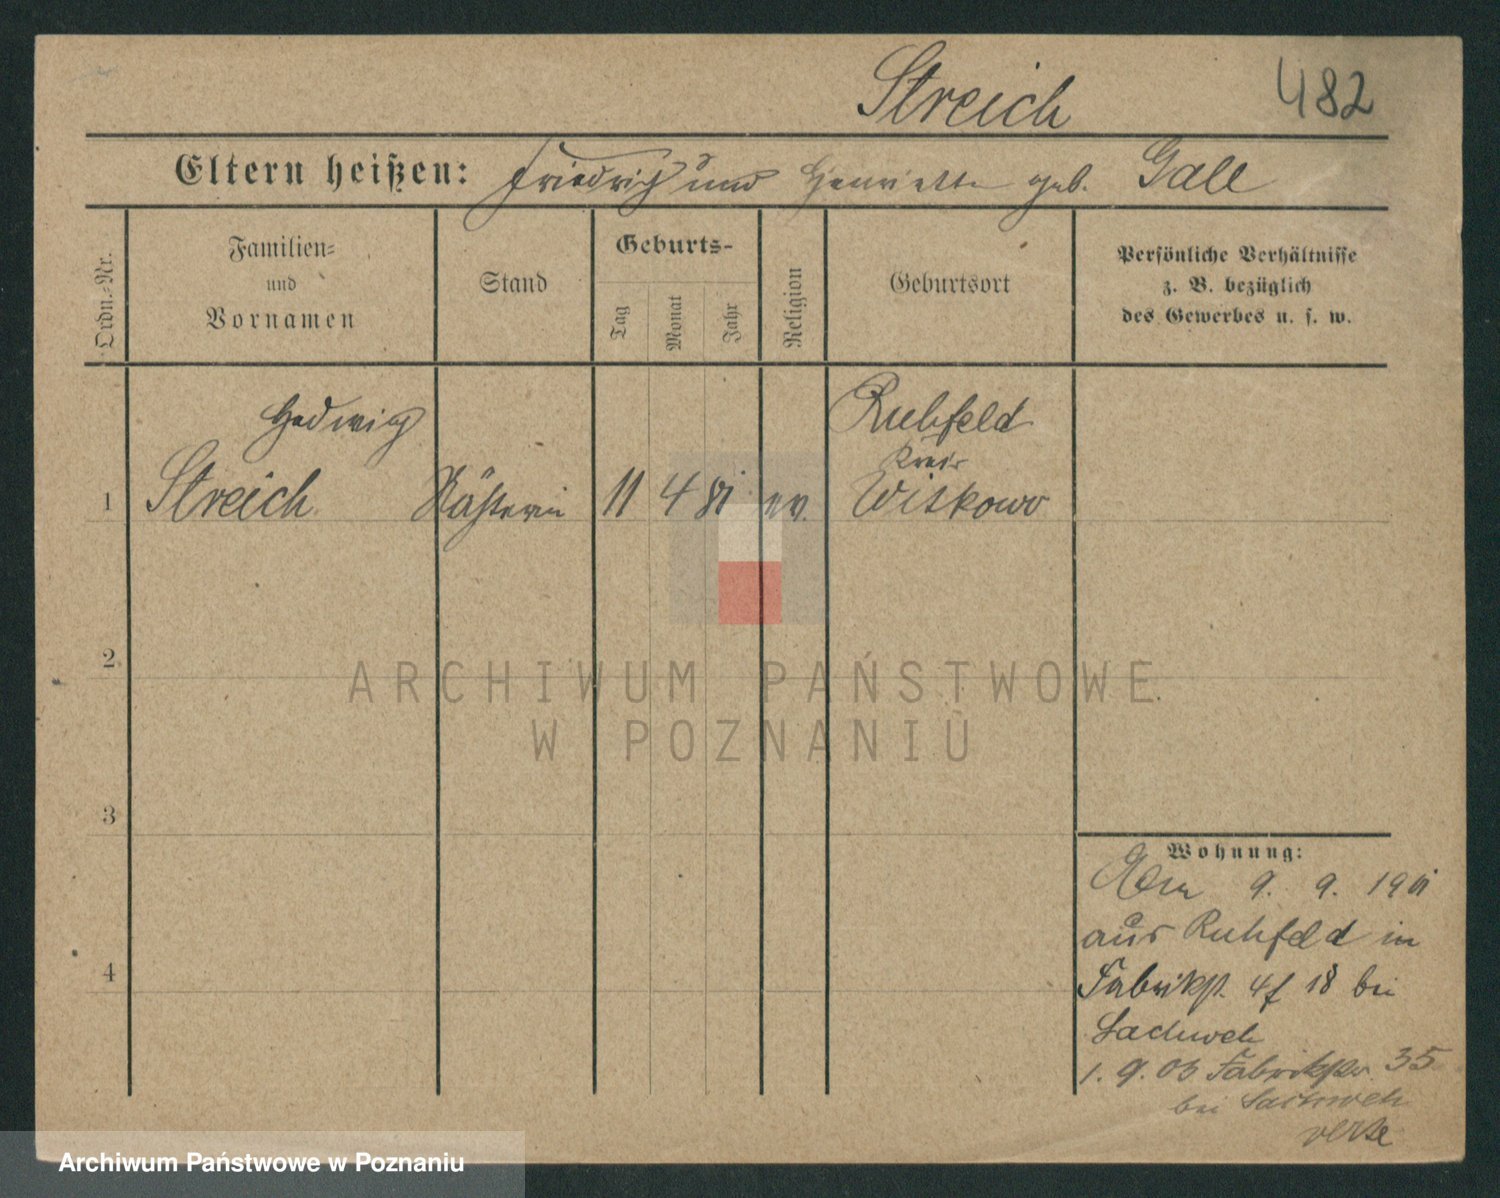 Streich 482
Eltern heißen: Friedrich und Henriette geb. Gall
Ordn.-Nr.
Familien- und Vornamen
Stand
Geburts-
Tag
Monat
Jahr
Religion
Geburtsort
Persönliche Verhältnisse
z. B. bezüglich
des Gewerbes u. s. w.
Hedwig Ruhfeld
Kreis
1 Streich Nähterin 11 4 81 ev. Witkowo
2
3
4
ARCHIWUM PAŃSTWOWE
W POZNANIU
Wohnung:
9. 9. 1901
aus Ruhfeld in
Fabrikst. 18 bei
Sachweh
1. 9. 03 Fabrikstr. 35
bei Sachweh
Archiwum Państwowe w Poznaniu